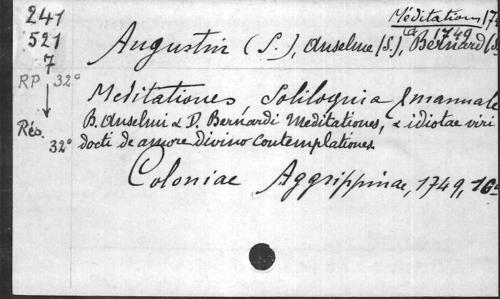 241
521
7
RP 32°
Rés.
32°
Méditations 17
1749
Augustin (S.), Anselme (S.), Bernard (S.
Meditationes, Soliloquia & manuale
B. Anselmi & D. Bernardi Meditationes, & idiotae viri
docti de amore divino Contemplationes.
Coloniae Aggrippinae, 1749, 16°